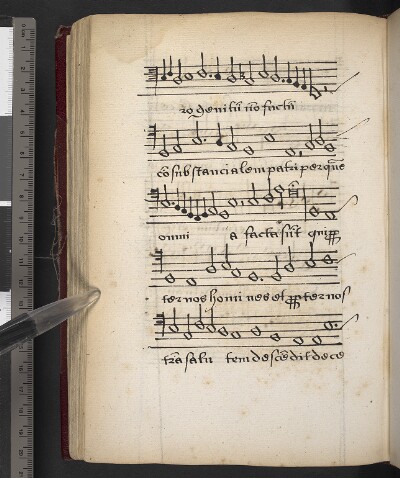 ro genitū nō factū
cōsubstancialem patri per quē
omni a facta sūt qui pp
ter nos homi nes et pp ter nos
trā salu tem descēdit de ce